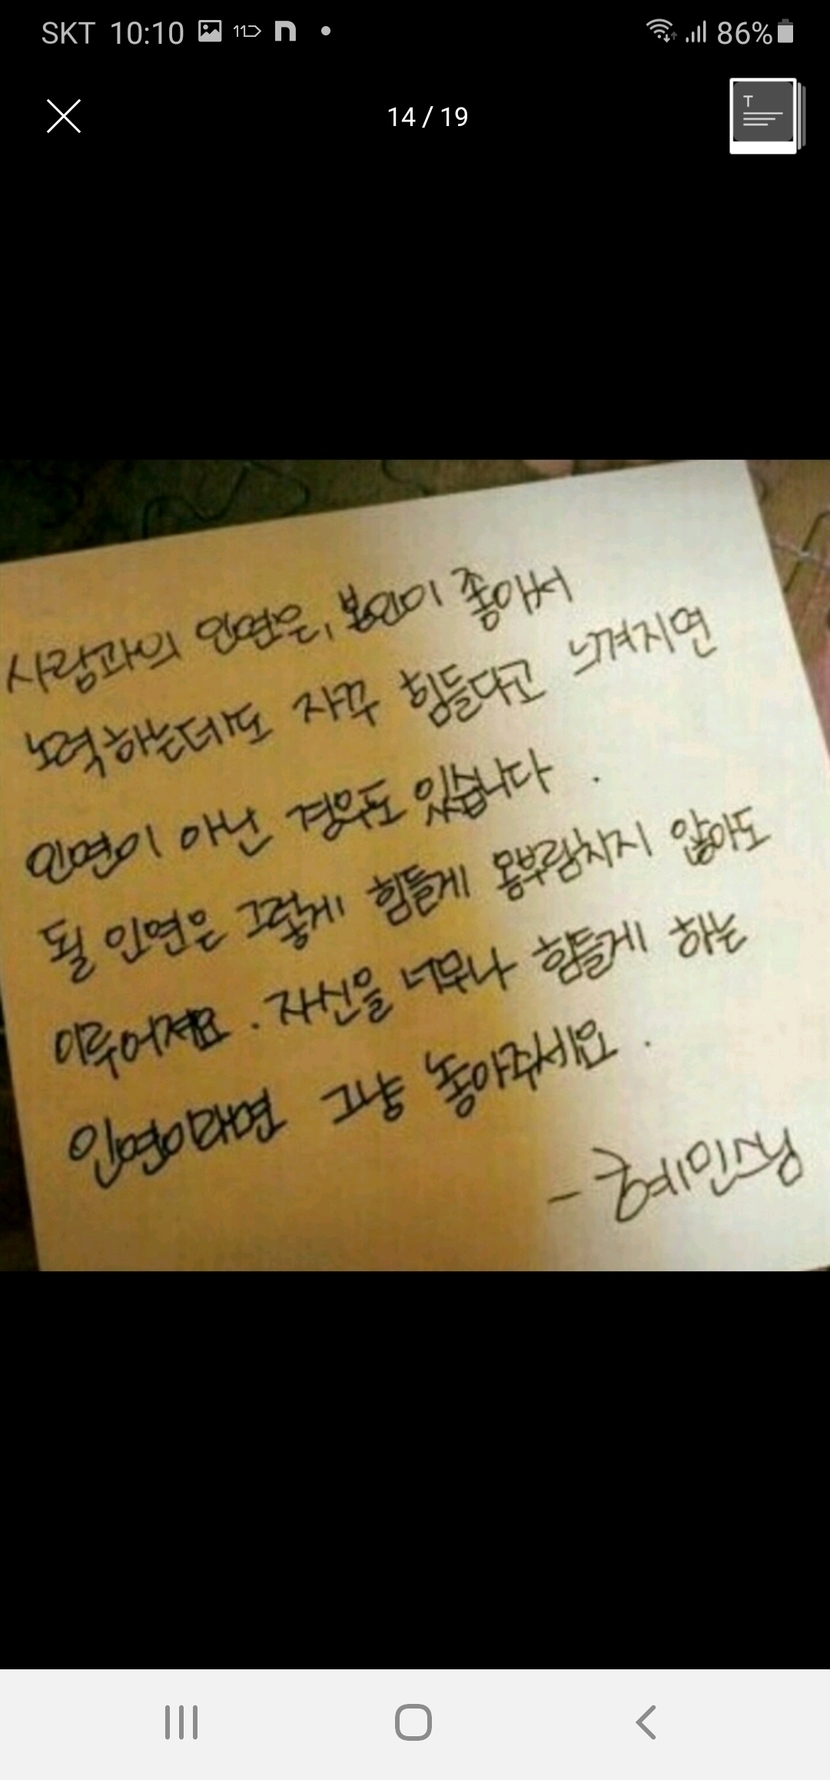 SKT 10:10
86%
14 / 19
T
사람과의 인연은, 본인이 좋아서
노력하는데도 자꾸 힘들다고 느껴지면
인연이 아닌 경우도 있습니다.
될 인연은 그렇게 힘들게 몸부림치지 않아도
이루어져요. 자신을 너무나 힘들게 하는
인연이라면 그냥 놓아주세요.
- 혜민스님